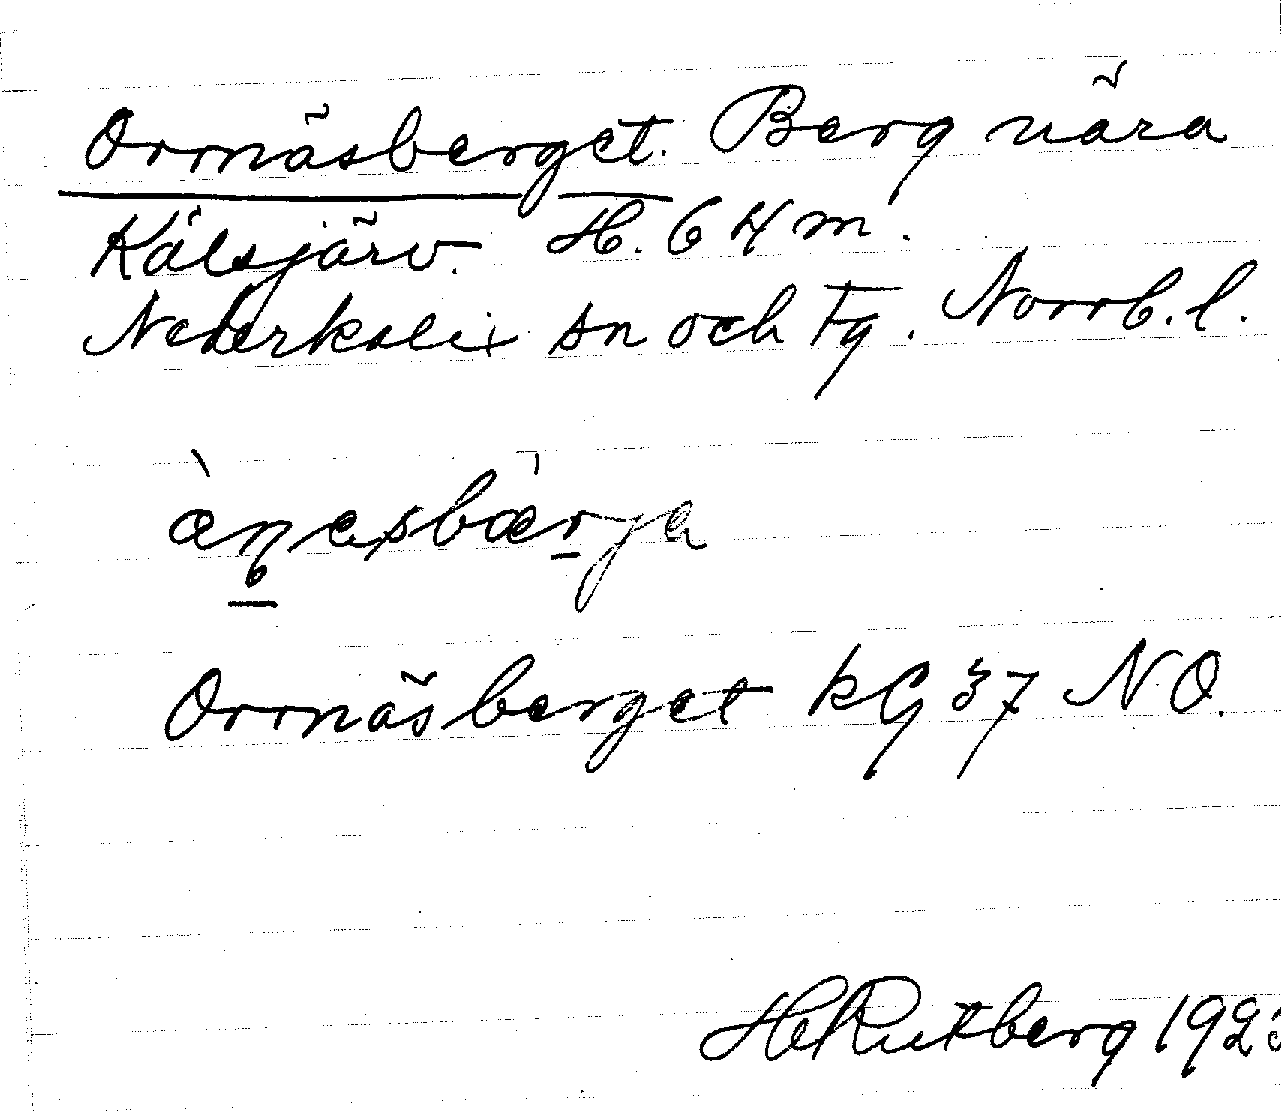 Ormäsberget. Berg nära
Kälsjärv. H. 64 m.
Nederkalix sn och tg. Norrb. l.
Ormäsberget kG 37 NO.
Hℓ Rutberg 192